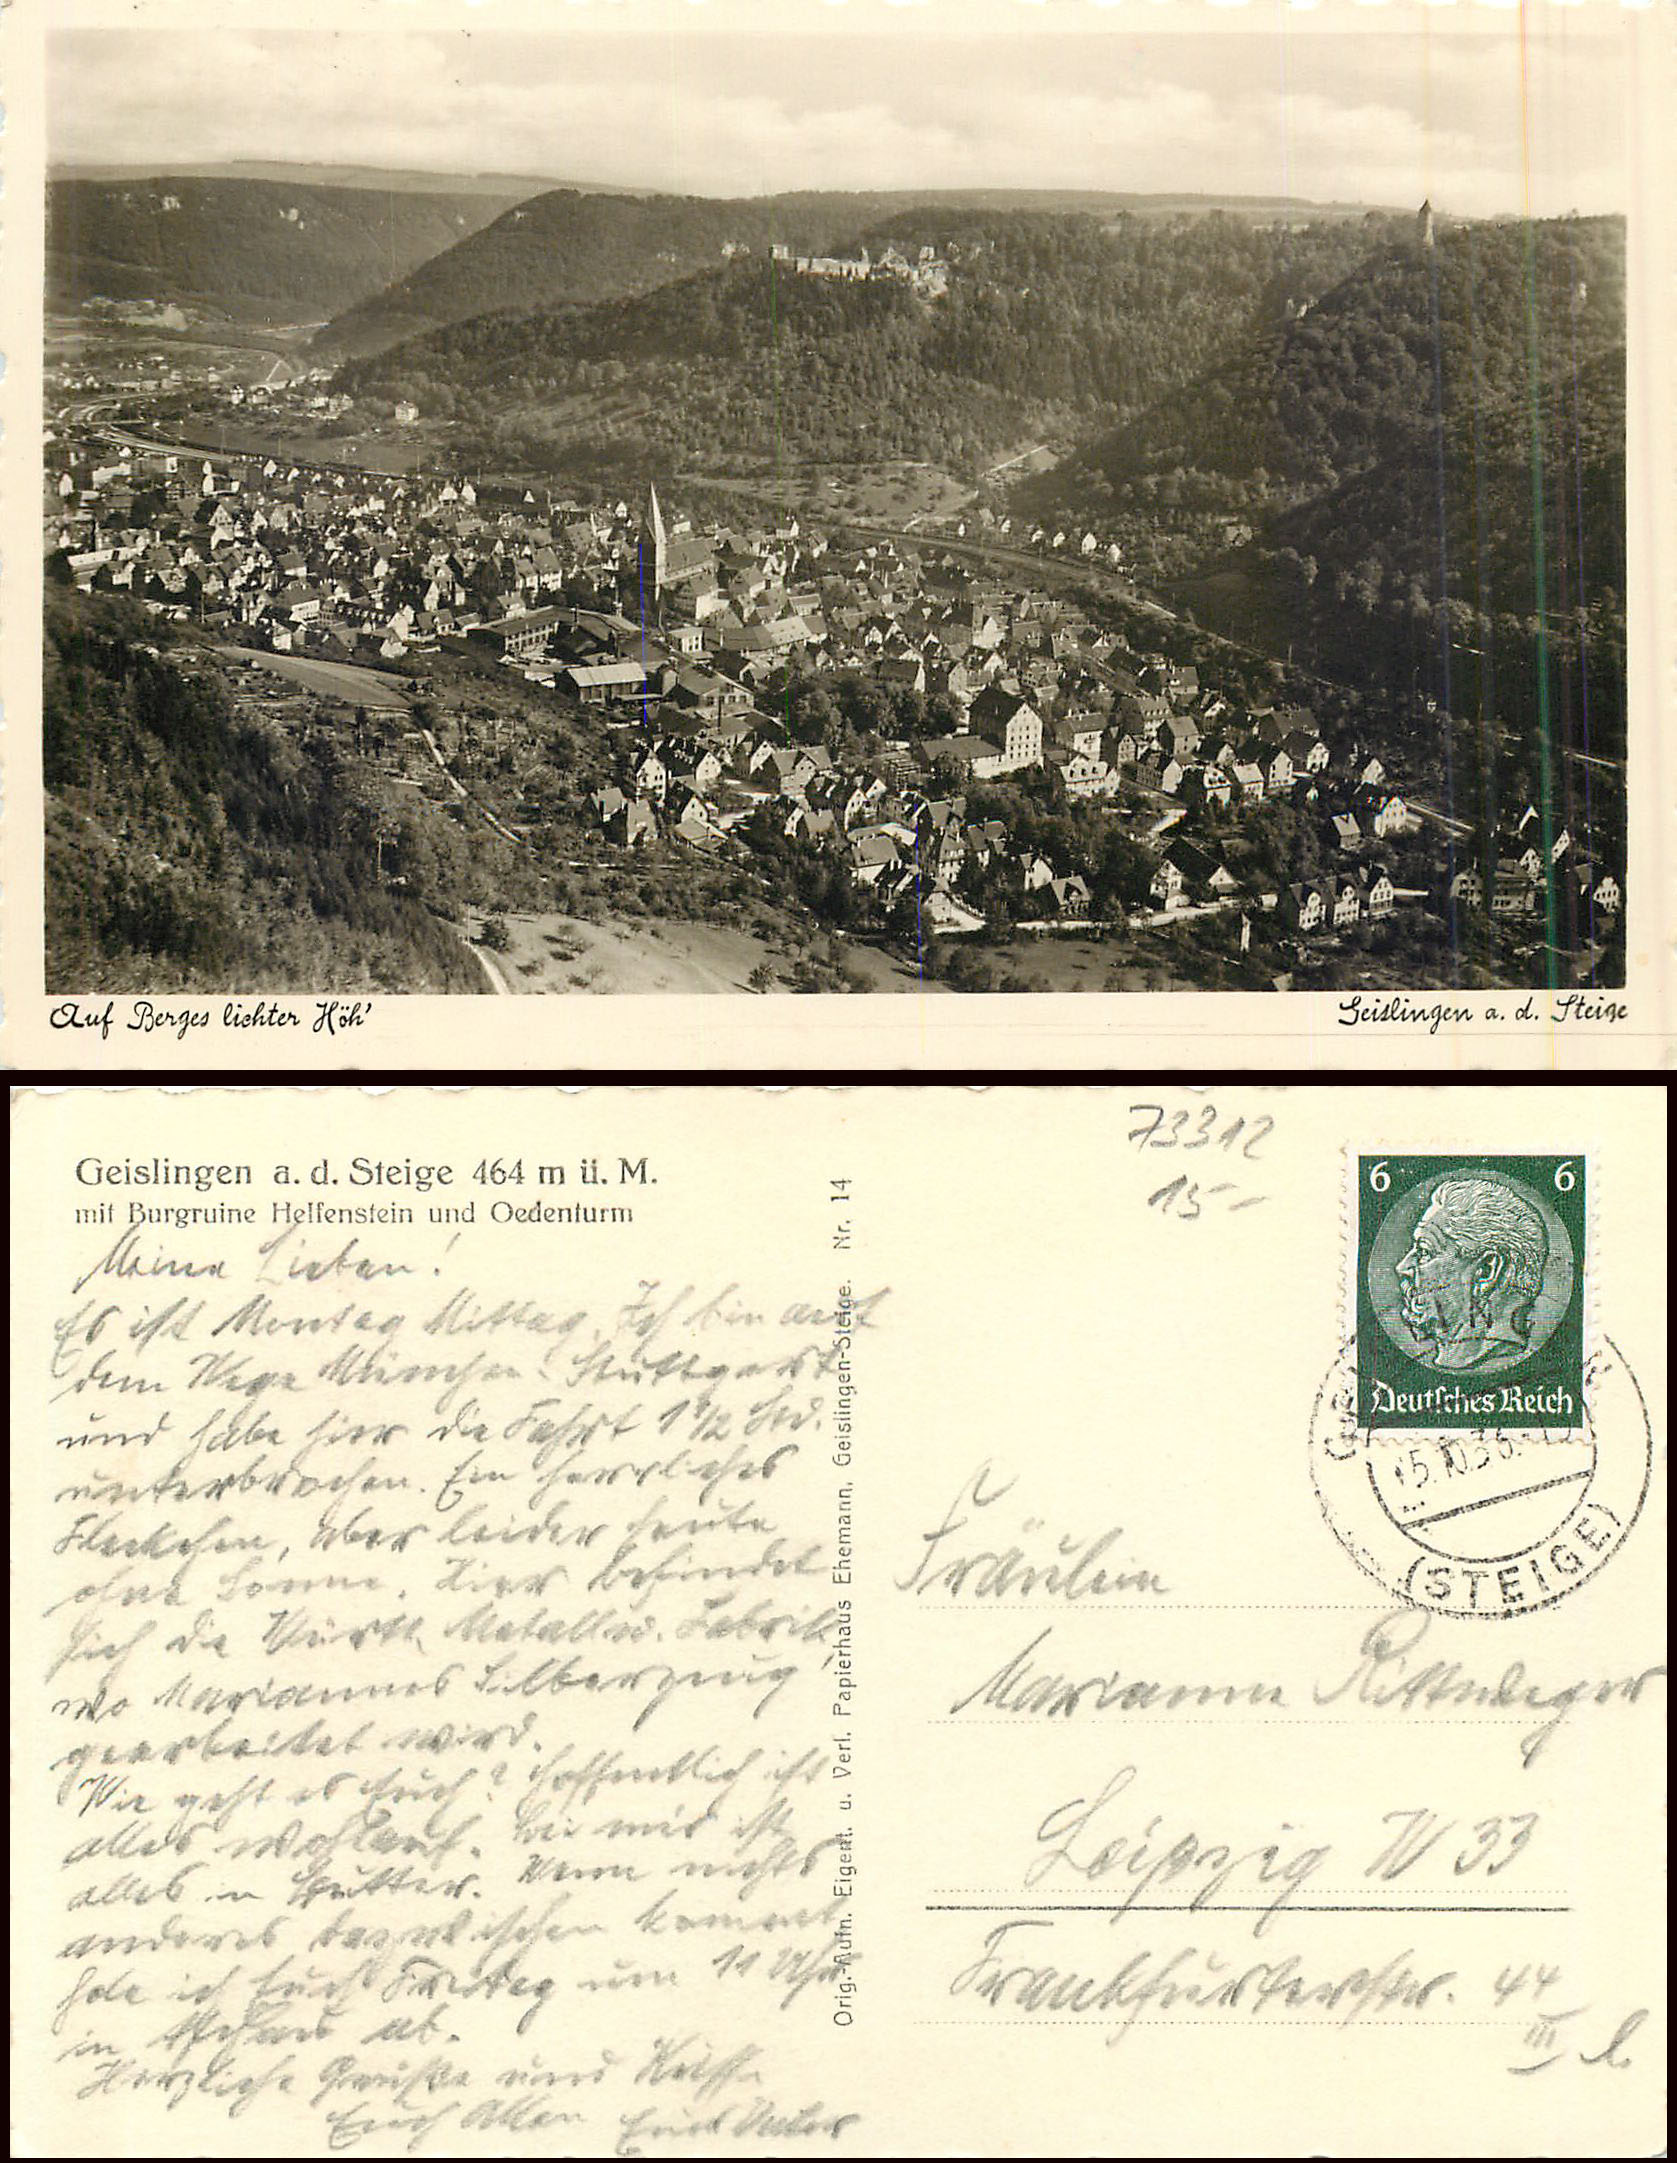 Auf Berges lichter Höh'
Geislingen a. d. Steige
Geislingen a. d. Steige 464 m ü. M.
mit Burgruine Helfenstein und Oedenturm
Meine Lieben!
Es ist Montag Mittag. Ich bin auf
dem Wege München-Stuttgart
und habe hier die Fahrt 1 1/2 Std.
unterbrochen. Ein herrliches
Fleckchen, aber leider heute
ohne Sonne. Hier befindet
sich die Württ. Metallw. Fabrik,
wo Mariannes Silberzeug
gearbeitet wird.
Wie geht es Euch? Hoffentlich ist
alles wohlauf. Bei mir ist
alles in Butter. Wenn nichts
anderes dazwischen kommt
hole ich Euch Freitag um 11 Uhr
in ab.
Herzliche Grüße und Küsse
Euch Allen Euer Vater
Orig.-Aufn. Eigent. u. Verl. Papierhaus Ehemann, Geislingen-Steige. Nr. 14
73312
15-
6 6
Deutsches Reich
15.10.36.
(STEIGE)
Fräulein
Marianne Rittweger
Leipzig W 33
Frankfurterstr. 44
III l.